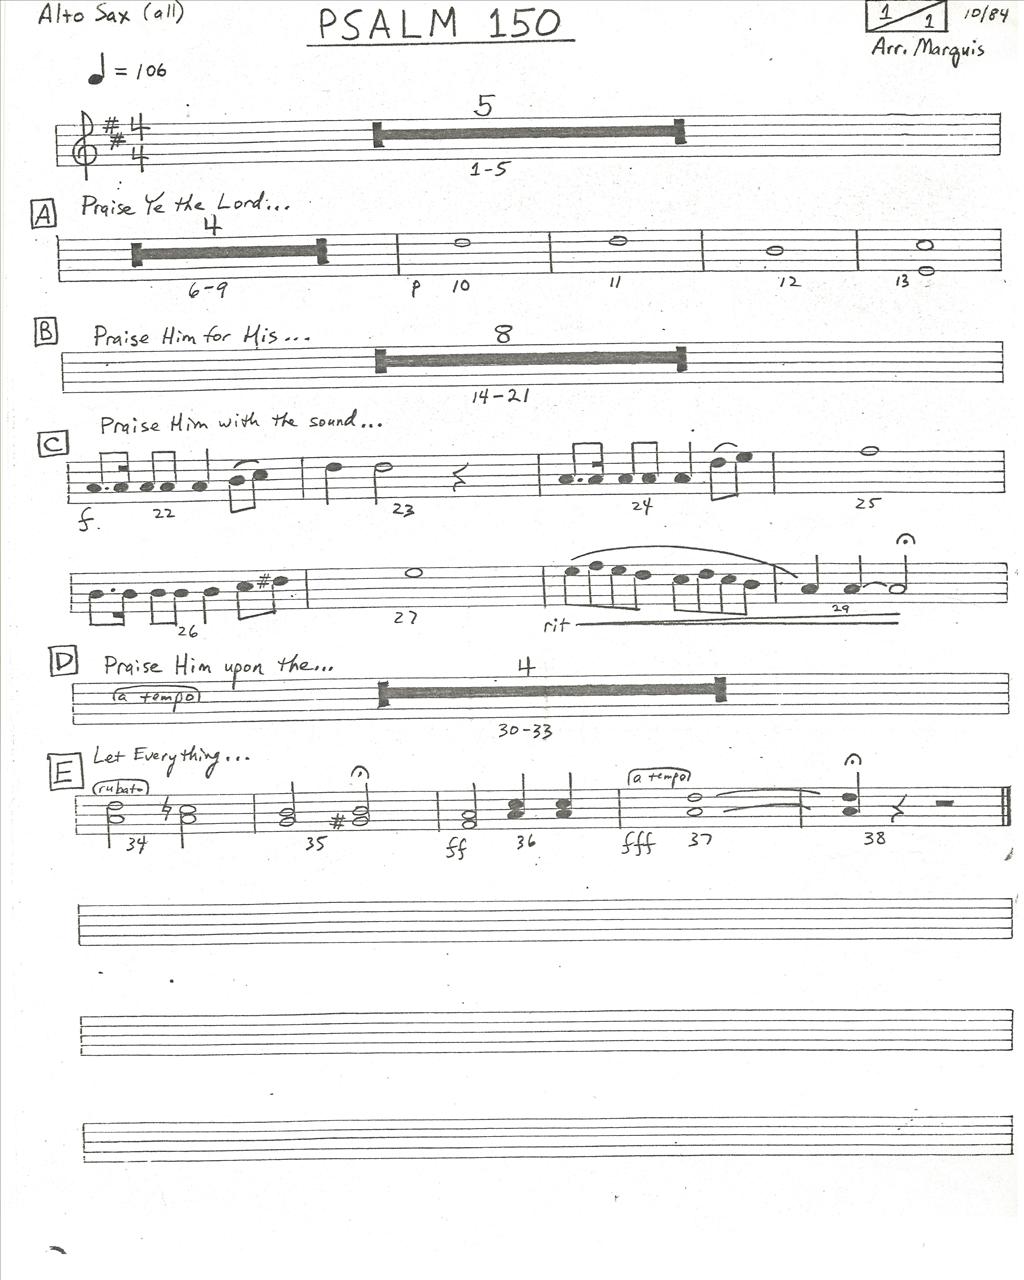 Alto Sax (all)
PSALM 150
1/1
10/84
Arr. Marquis
♩ = 106
5
4
4
1-5
A
Praise Ye the Lord...
4
6-9
p
10
11
12
13
B
Praise Him for His...
8
14-21
C
Praise Him with the sound...
f.
22
23
24
25
26
27
rit
29
D
Praise Him upon the...
4
a tempo
30-33
E
Let Everything...
rubato
a tempo
34
35
ff
36
fff
37
38